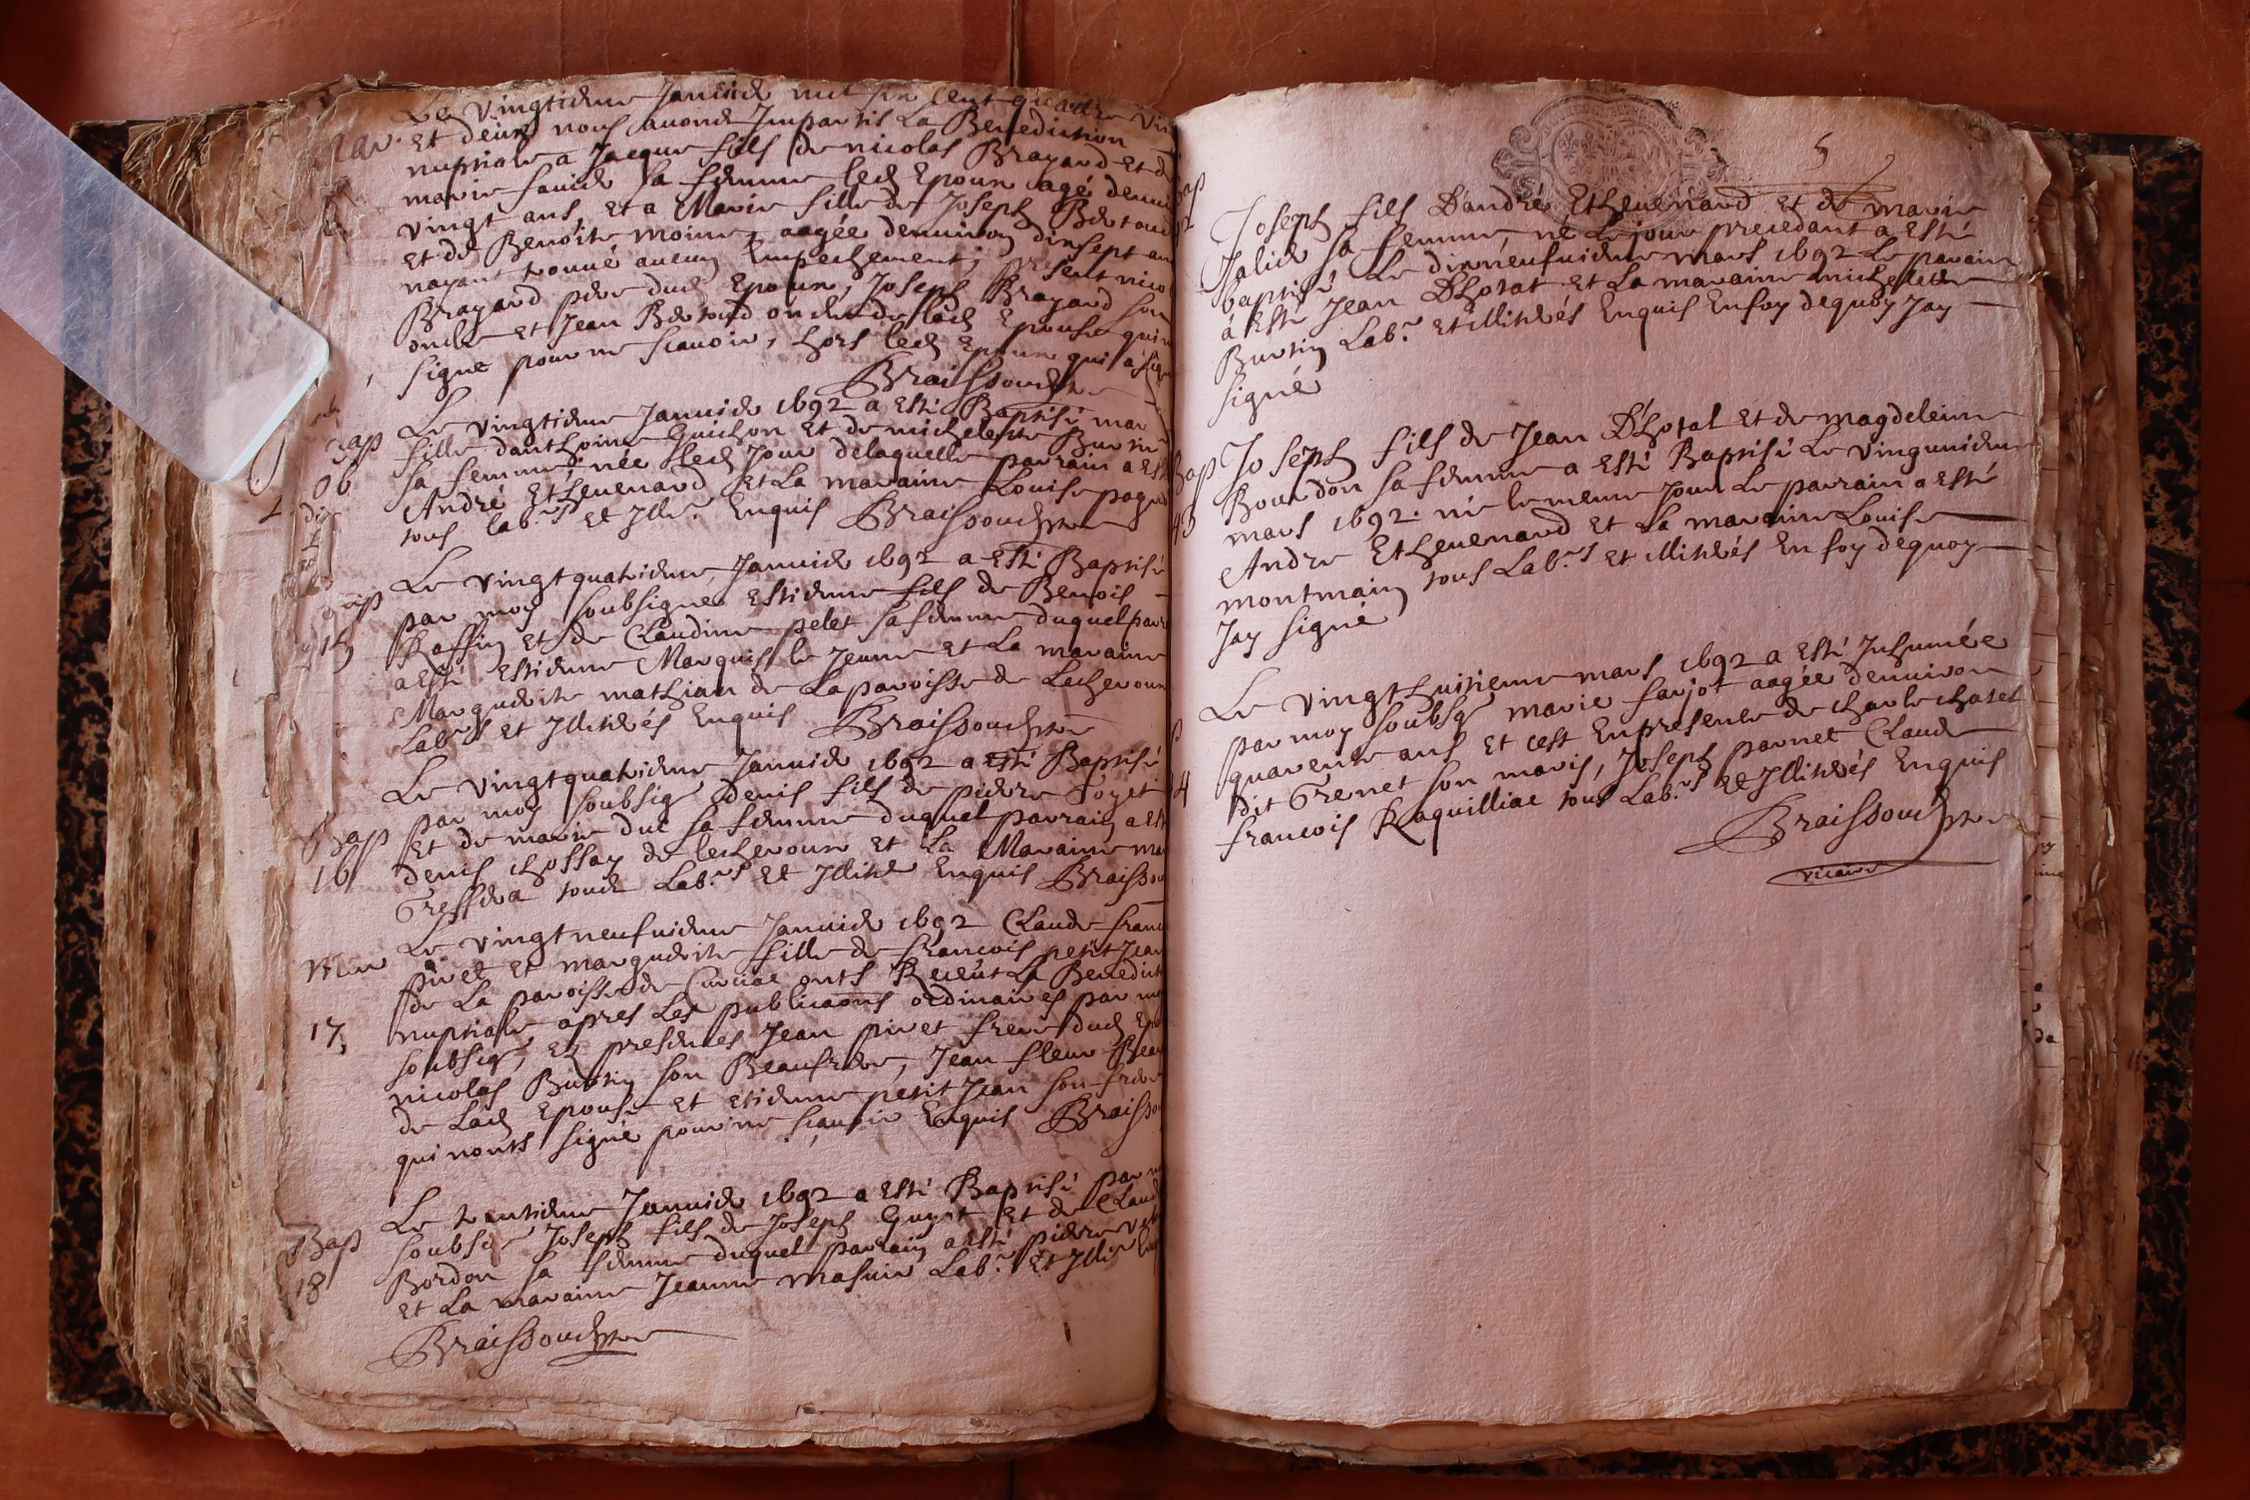 Le vingtieme Januier mil six cent quatre vin
Mar. et deux nous auons Imparti La Benediction
nuptiale a Jacque fils de nicolas Brayard et d
marie fauier sa femme led Epoux agé denui
vingt ans, et a Marie fille de Joseph Bertoud
et de Benoite moine, aagée denuiron dixsept an
nayant trouué aucun Empechement, presents nico
Brayard pere dud Epoux, Joseph Brayard son
oncle et Jean Bertoud oncle de lad Epouse qui n
signe pour ne scauoir, hors led Epoux qui a sig
Braissoud ptre
Le vingtieme Januier 1692 a esté Baptisé mar
Bap
fille danthoine Guichon et de michelette Burtin
sa femme, née led Jour de laquelle parrain a est
06
André Etheuenard et La maraine Louise paged
tous lab.rs et Illi.e Enquis Braissoud ptre
Le vingtquatrieme Januier 1692 a esté Baptisé
Bap
par moy soubsigné Estienne fils de Benois
Raffin et de Claudine pelet sa femme duquel parr
15
a esté Estienne Marquis le Jeune et La maraine
Marguerite mathian de La paroisse de Lecheroux
Lab.rs et Illitérés Enquis Braissoud ptre
Le vingtquatrieme Januier 1692 a esté Baptisé
par moy soubsig.é denis fils de pierre Poyet
Bap
et de marie duc sa femme duquel parrain a est
16
denis chossay de lecheroux et La Maraine ma
Tressera tous Lab.rs et Illite Enquis Braissou
Le vingtneufuieme Januier 1692 Claude franc
Mar
piret et marguerite fille de francois petit Jean
de La paroisse de Curciac onts Receut La Benedict
nuptiale apres Les publicaons ordinaires par m
17
soubsig.é, Es presences Jean piret frere dud Epo
nicolas Burtin son Beaufrere, Jean fleur Beau
de Lad Epouse et etienne petit Jean son frere
qui nonts signé pour ne scauoir Enquis Braissou
Le trentieme Januier 1692 a esté Baptisé par m
Bap
soubsig.é Joseph fils de Joseph Guyot et de Claud
18
Bordon sa femme duquel parrain a esté pierre
et La maraine Jeanne masuir Lab.r et Illi.e
Braissoud ptre
5
Bap
Joseph fils D'andré Etheuenard et de marie
Jalier sa femme, né le jour precedant a esté
baptisé Le dixneufuieme mars 1692 Le parain
à esté Jean D'hotat et La maraine michelette
Burtin Lab.r et Illitérés Enquis En foy dequoy Jay
signé
Joseph fils de Jean D'hotal et de magdeleine
Bap
Bourdon sa femme a esté Baptisé Le vingunieme
mars 1692. né le meme Jour Le parrain a esté
Andre Etheuenard et La maraine Louise
montmain tous Lab.rs et Illitérés En foy dequoy
Jay signé
Le vingthuitieme mars 1692 a esté Inhumée
par moy soubsg.é marie farjot aagée denuiron
quarente ans et cest En presence de charle chatel
dit Grenet son maris, Joseph parnet Claude
francois Raquilliac tous Lab.rs et Illitérés Enquis
Braissoud ptre
vicaire